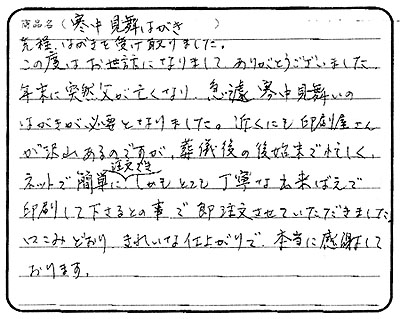 商品名(寒中見舞はがき)
先程、はがきを受け取りました。
この度はお世話になりまして、ありがとうございました。
年末に突然父が亡くなり、急遽寒中見舞いの
はがきが必要となりました。近くにも印刷屋さん
が沢山あるのですが、葬儀後の後始末で忙しく、
ネットで簡単に注文でき しかもとても丁寧な出来ばえで
印刷して下さるとの事で即注文させていただきました。
口こみどおり きれいな仕上がりで、本当に感謝して
おります。